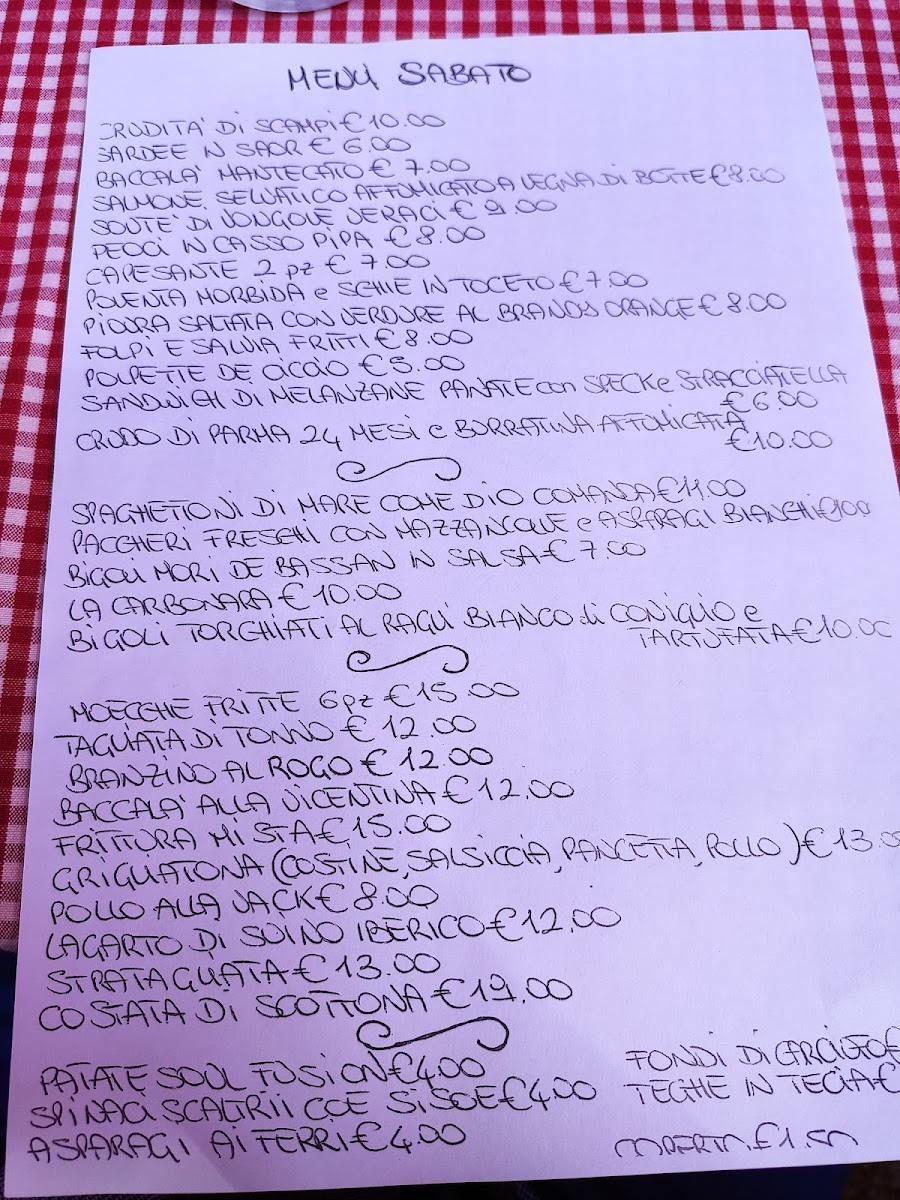 MENU SABATO
CRUDITA' DI SCAMPI € 10.00
SARDEE IN SAOR € 6.00
BACCALA' MANTECATO € 7.00
SALMONE SELVATICO AFFUMICATO A LEGNA DI BOTTE € 8.00
SOUTE' DI VONGOLE VERACI € 9.00
PEOCI IN CASSO PIPA € 8.00
CAPESANTE 2 pz € 7.00
POLENTA MORBIDA e SCHIE IN TOCETO € 7.00
PIOVRA SALTATA CON VERDURE AL BRANDY ORANGE € 8.00
FOLPI E SALVIA FRITTI € 8.00
POLPETTE DE CICCIO € 5.00
SANDWICH DI MELANZANE PANATE con SPECK e STRACCIATELLA
€ 6.00
CRUDO DI PARMA 24 MESI e BURRATINA AFFUMICATA
€ 10.00
SPAGHETTONI DI MARE COME DIO COMANDA € 11.00
PACCHERI FRESCHI CON MAZZANCOLLE e ASPARAGI BIANCHI €
BIGOLI MORI DE BASSAN IN SALSA € 7.00
LA CARBONARA € 10.00
BIGOLI TORCHIATI AL RAGU' BIANCO di CONIGLIO e
TARTUFATA € 10.00
MOECCHE FRITTE 6pz € 15.00
TAGLIATA DI TONNO € 12.00
BRANZINO AL ROGO € 12.00
BACCALA' ALLA VICENTINA € 12.00
FRITTURA MISTA € 15.00
GRIGLIATONA (COSTINE, SALSICCIA, PANCETTA, POLLO) € 13.00
POLLO ALLA JACK € 8.00
LAGARTO DI SUINO IBERICO € 12.00
STRATAGLIATA € 13.00
COSTATA DI SCOTTONA € 19.00
PATATE SOUL FUSION € 4.00
SPINACI SCALTRII COE SISOE € 4.00
ASPARAGI AI FERRI € 4.00
FONDI DI CARCIOFO €
TEGHE IN TECIA €
€ 1.50